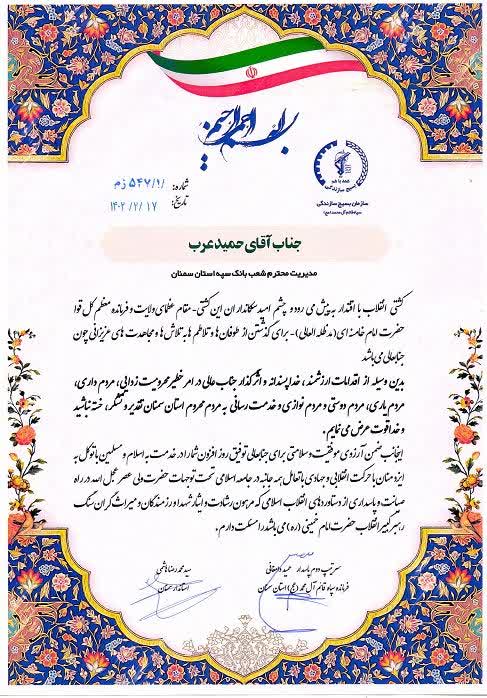 بسم الله الرحمن الرحیم
شماره: ۵۴۷/۱/ زم
تاریخ: ۱۴۰۲/۲/۱۷
همه با هم
بسیج سازندگی
سازمان بسیج سازندگی
سپاه قائم آل محمد (عج)
جناب آقای حمید عرب
مدیریت محترم شعب بانک سپه استان سمنان
کشتی انقلاب با اقتدار به پیش می رود و چشم امید سکاندار ان این کشتی- مقام عظمای ولایت و فرمانده معظم کل قوا
حضرت امام خامنه ای (مدظله العالی)- برای گذشتن از طوفان ها و تلاطم ها به تلاش ها و مجاهدت های عزیزانی چون
جنابعالی می باشد
بدین وسیله از اقدامات ارزشمند، خداپسندانه و اثرگذار جناب عالی در امر خطیر محرومیت زدایی، مردم داری،
مردم یاری، مردم دوستی و مردم نوازی و خدمت رسانی به مردم محروم استان سمنان تقدیر و تشکر، خسته نباشید
و خدا قوت عرض می نمایم.
اینجانب ضمن آرزوی موفقیت و سلامتی برای جنابعالی توفیق روز افزون شما در خدمت به اسلام و مسلمین با توکل به
ایزد منان با حرکت انقلابی و جهادی با تعامل همه جانبه در جامعه اسلامی تحت توجهات حضرت ولی عصر عجل الله در راه
صیانت و پاسداری از دستاوردهای انقلاب اسلامی که مرهون رشادت و ایثار شهدا و رزمندگان و میراث گران سنگ
رهبر کبیر انقلاب حضرت امام خمینی (ره) می باشد را مسئلت دارم.
سرتیپ دوم پاسدار حمید دامغانی
فرمانده سپاه قائم آل محمد (عج) استان سمنان
سید محمدرضا هاشمی
استاندار سمنان